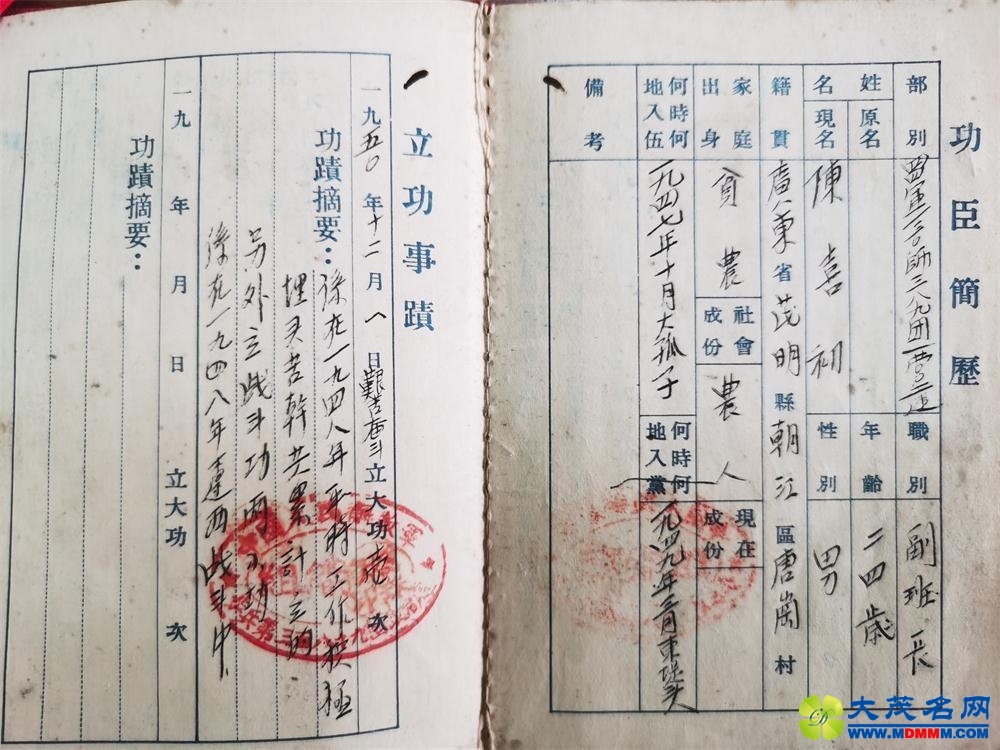 功臣簡歷
部別 三八九团一营二連 職別 副班長
姓名 原名 年齡 二四歲
現名 陳喜初 性別 男
籍貫 廣東省茂明縣朝江區唐崗村
家庭出身 貧農 社會成份 農人 現在成份
何時何地入伍 一九四七年十月大孤子 何時何地入黨 一九四九年
備考
立功事蹟
一九五〇年十二月八日艱苦奋斗立大功壹次
功蹟摘要：係在一九四八年平時工作積極
埋头苦幹共累計立的
另外立战斗功两小功
係在一九四八年遼西战斗中
一九 年 月 日 立大功 次
功蹟摘要：
大茂名网
WWW.MDMMM.COM